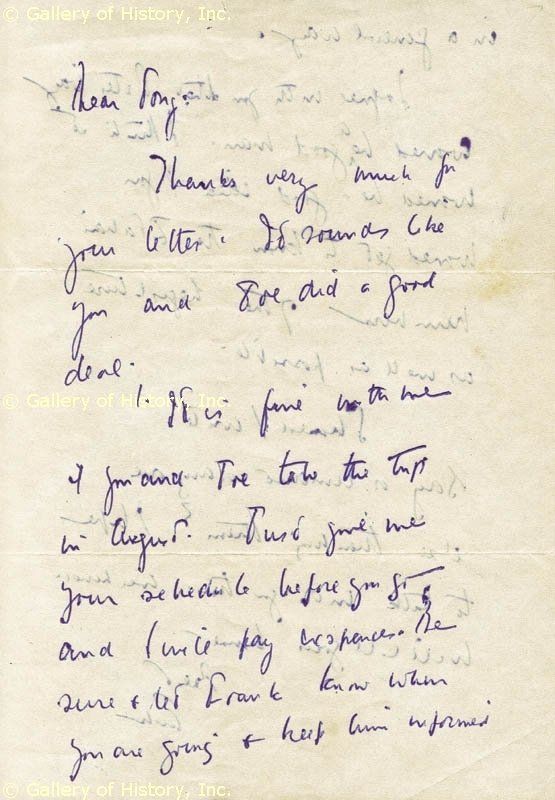 © Gallery of History, Inc.
Dear Tony:
Thanks very much for
your letter. It sounds like
you and Joe did a good
deal.
© Gallery of History, Inc.
It is fine with me
if you and Joe take the trip
in August. Just give me
your schedule before you go
and I will pay expenses. Be
sure & let Frank know when
you are going & keep him informed
© Gallery of History, Inc.